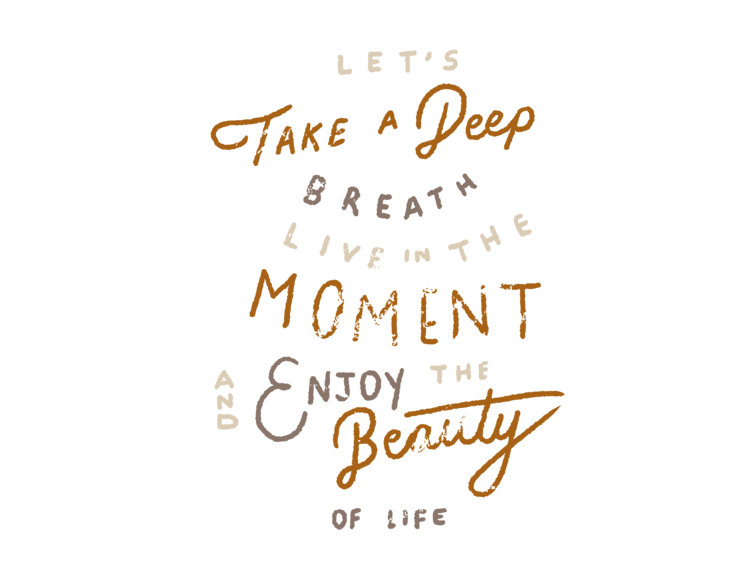 LET'S
TAKE A Deep
BREATH
LIVE IN THE
MOMENT
AND ENJOY THE
Beauty
OF LIFE